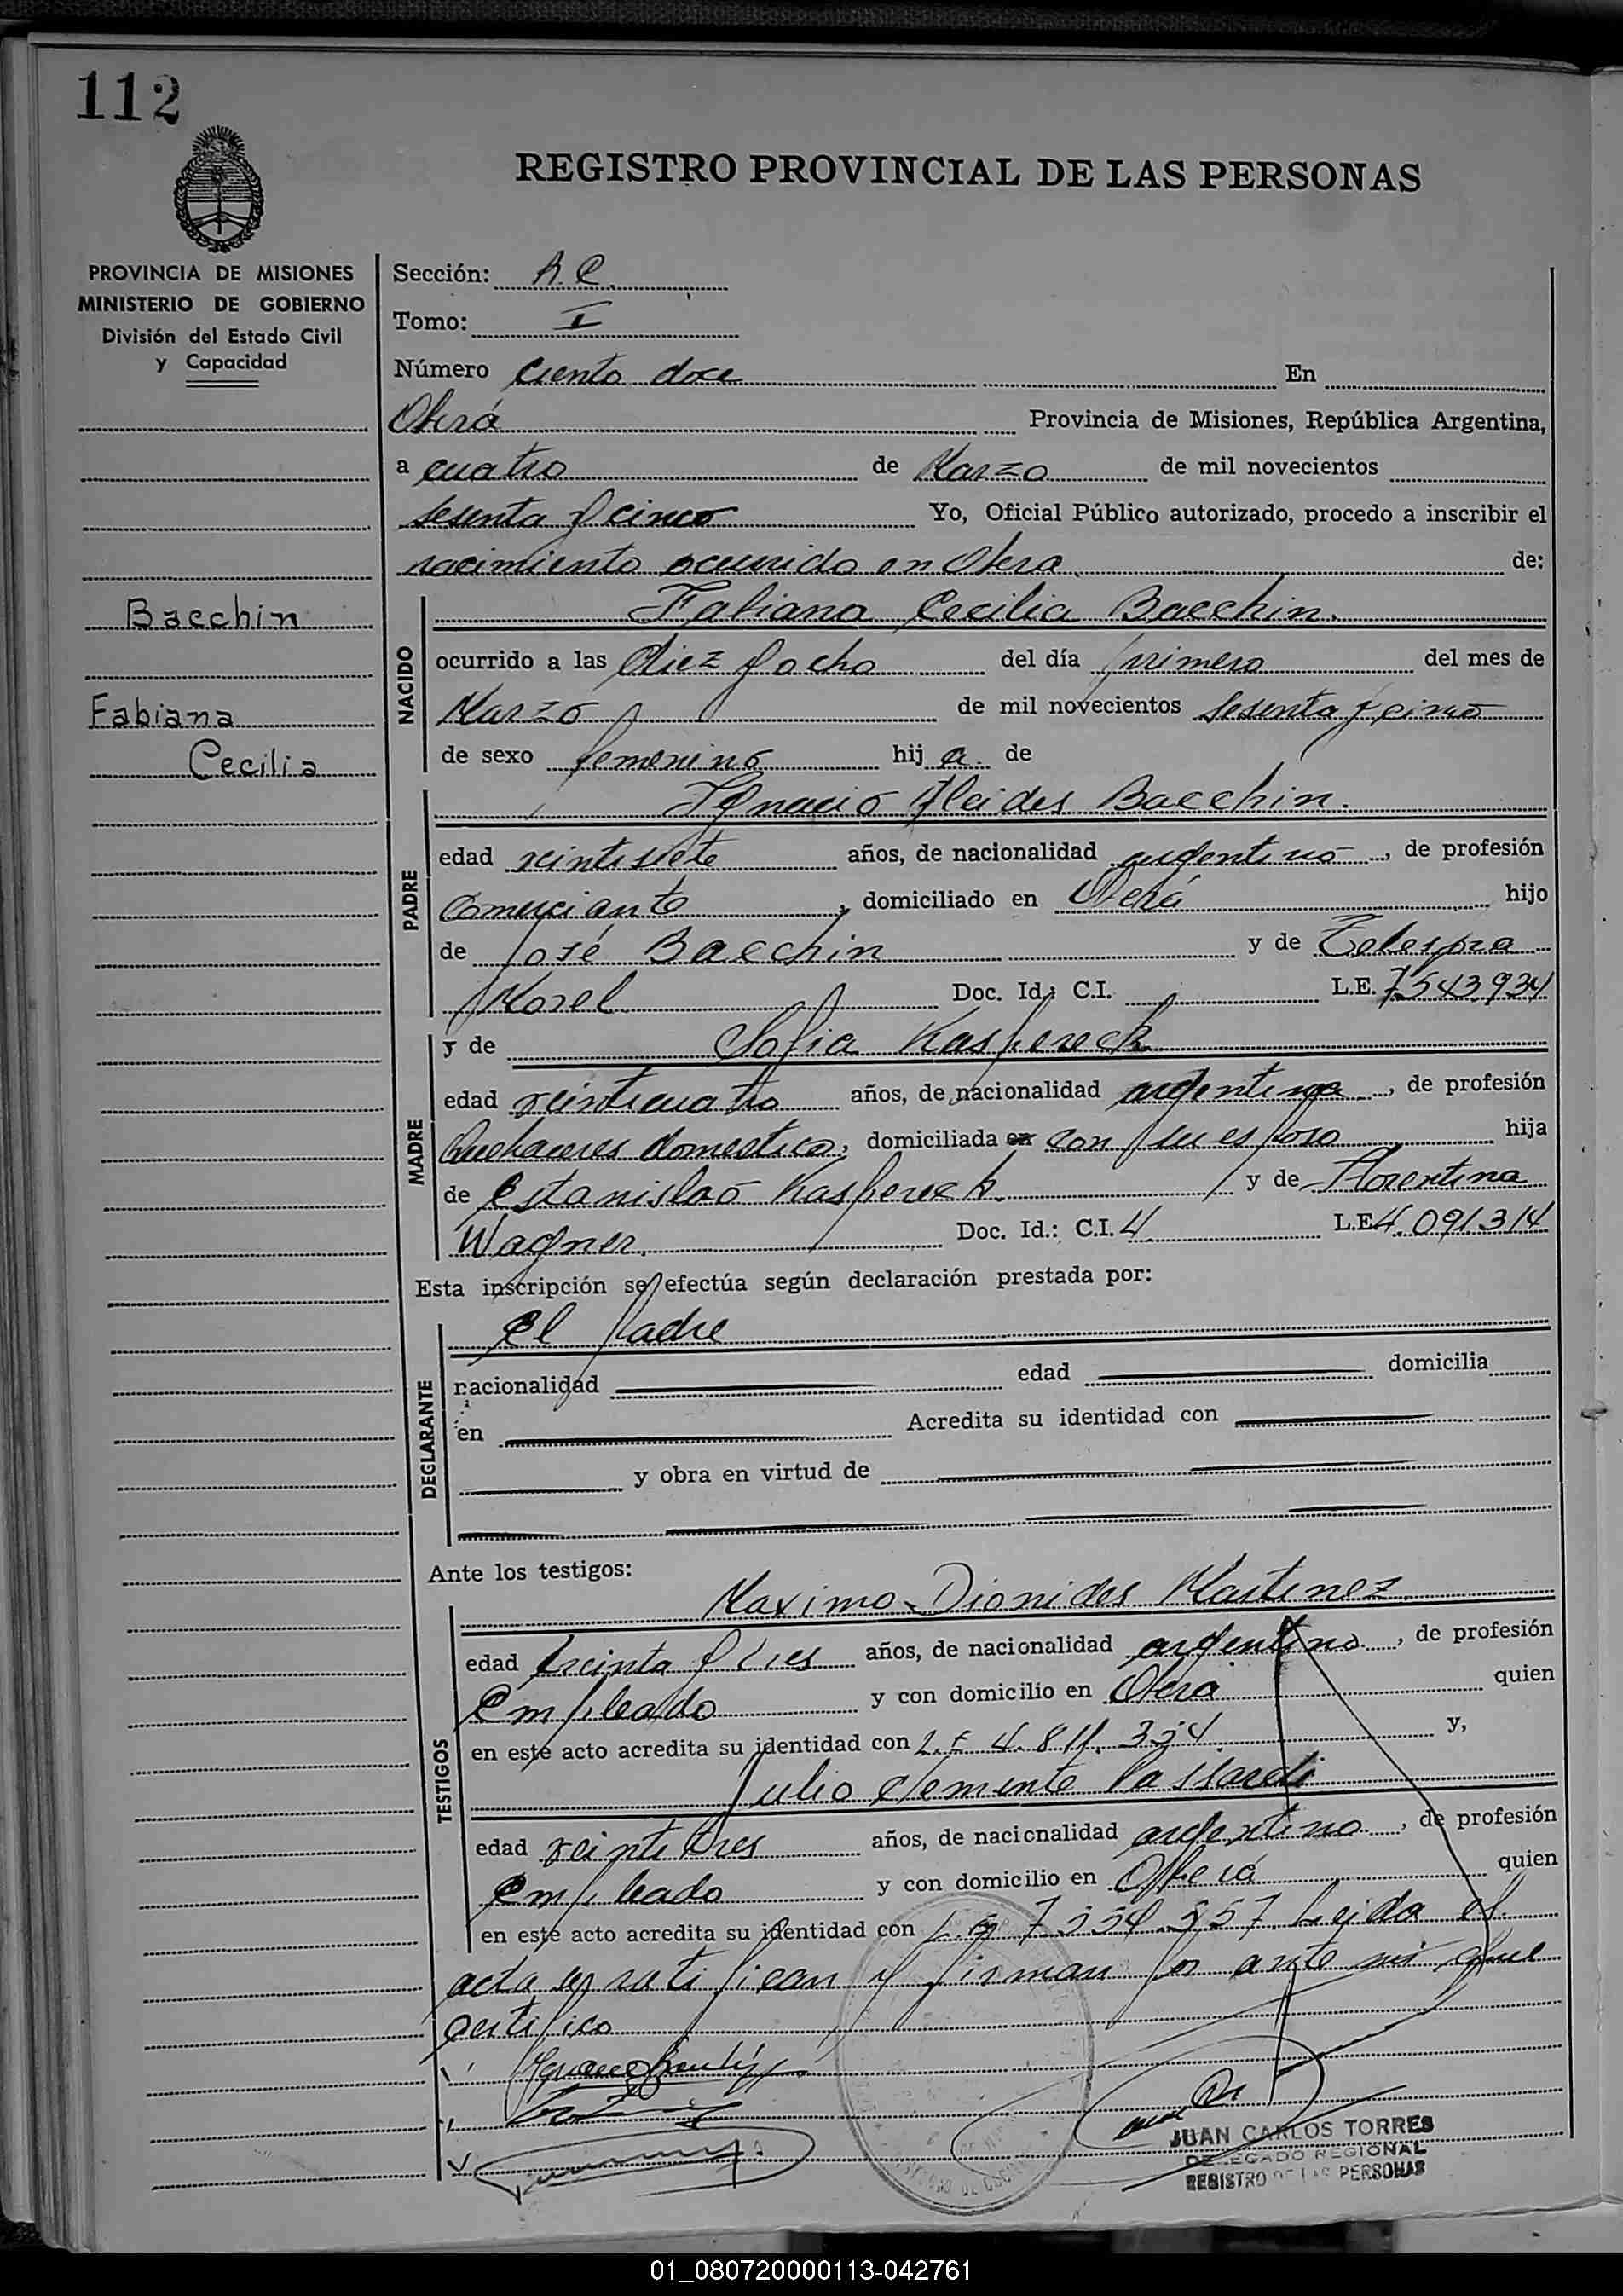 112
REGISTRO PROVINCIAL DE LAS PERSONAS
PROVINCIA DE MISIONES
MINISTERIO DE GOBIERNO
División del Estado Civil
y Capacidad
Bacchin
Fabiana
Cecilia
Sección: R.C.
Tomo: I
Número Ciento doce En
Oberá Provincia de Misiones, República Argentina,
a cuatro de Marzo de mil novecientos
sesenta y cinco Yo, Oficial Público autorizado, procedo a inscribir el
nacimiento ocurrido en Obera de:
NACIDO
Fabiana Cecilia Bacchin.
ocurrido a las Diez y ocho del día primero del mes de
Marzo de mil novecientos sesenta y cinco
de sexo femenino hij a de
PADRE
Ignacio Alcides Bacchin.
edad veintisiete años, de nacionalidad argentino, de profesión
Comerciante, domiciliado en Oberá hijo
de José Bacchin y de
Morel Doc. Id.: C.I. L.E. 7543.934
MADRE
y de Sofia Kaspereck
edad veinticuatro años, de nacionalidad argentina, de profesión
Quehaceres domestico, domiciliada en con su esposo hija
de Estanislao Kaspereck y de Florentina
Wagner. Doc. Id.: C.I. 4 L.E 4.091.314
Esta inscripción se efectúa según declaración prestada por:
DECLARANTE
El padre
nacionalidad edad domicilia
en Acredita su identidad con
y obra en virtud de
Ante los testigos:
TESTIGOS
Maximo Dionides Martinez
edad treinta y tres años, de nacionalidad argentino, de profesión
Empleado y con domicilio en Obera quien
en este acto acredita su identidad con L.E 4.811.334 y,
Julio Clemente
edad veintitres años, de nacionalidad argentino, de profesión
Empleado y con domicilio en Oberá quien
en este acto acredita su identidad con Leida el
acta ratifican y firman por ante mi que
certifico
JUAN CARLOS TORRES
DELEGADO REGIONAL
REGISTRO DE LAS PERSONAS
01_080720000113-042761